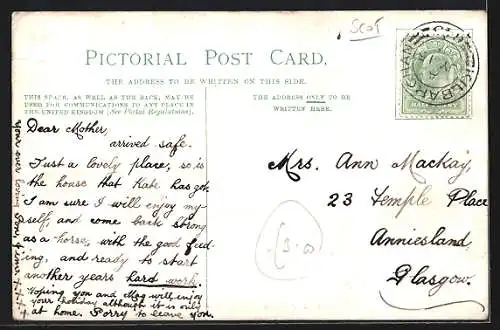 Scot
PICTORIAL POST CARD.
THE ADDRESS TO BE WRITTEN ON THIS SIDE.
THIS SPACE, AS WELL AS THE BACK, MAY BE
USED FOR COMMUNICATIONS TO ANY PLACE IN
THE UNITED KINGDOM (See Postal Regulations).
THE ADDRESS ONLY TO BE
WRITTEN HERE.
Dear Mother,
arrived safe.
Just a lovely place, so is
the house that Kate has got
I am sure I will enjoy my
self, and come back strong
as a horse, with the good feed
ing, and ready to start
another years hard work.
Hoping you and Meg will enjoy
your holiday although it is only
at home. Sorry to leave you.
your ever loving
Mrs. Ann Mackay,
23 Temple Place
Anniesland,
Glasgow.
(3-0)
KILBARCHAN